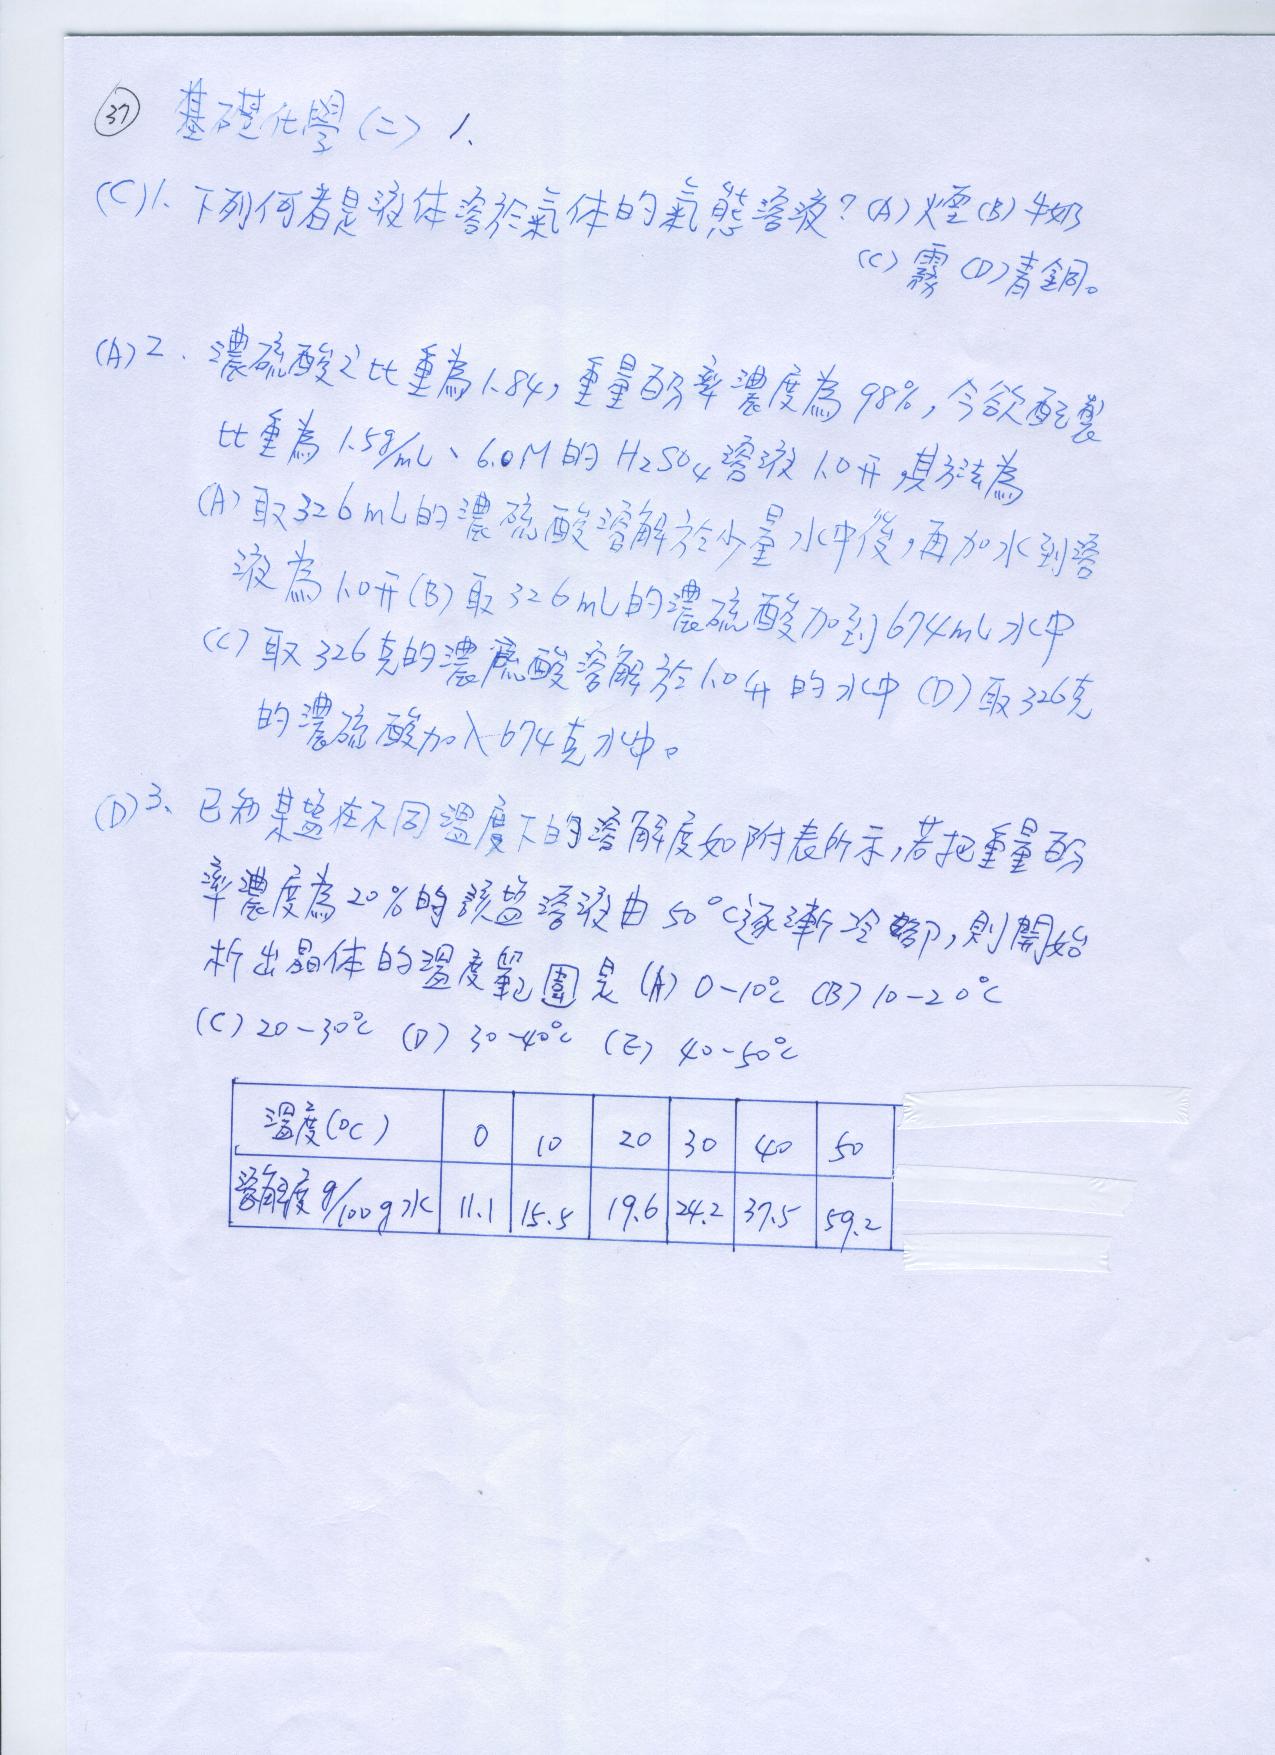 37 基礎化學(二) 1.
(C)1. 下列何者是液体溶於氣体的氣態溶液?(A)煙(B)牛奶
(C)霧(D)青銅。
(A)2. 濃硫酸之比重為1.84,重量百分率濃度為98%,今欲配製
比重為1.5g/mL、6.0M的H2SO4溶液1.0升,其方法為
(A)取326mL的濃硫酸溶解於少量水中後,再加水到溶
液為1.0升(B)取326mL的濃硫酸加到674mL水中
(C)取326克的濃硫酸溶解於1.0升的水中(D)取326克
的濃硫酸加入674克水中。
(D)3. 已知某鹽在不同溫度下的溶解度如附表所示,若把重量百分
率濃度為20%的該鹽溶液由50°C逐漸冷卻,則開始
析出晶体的溫度範圍是(A)0-10°C (B)10-20°C
(C)20-30°C (D)30-40°C (E)40-50°C
溫度(0C) 0 10 20 30 40 50
溶解度g/100g水 11.1 15.5 19.6 24.2 37.5 59.2